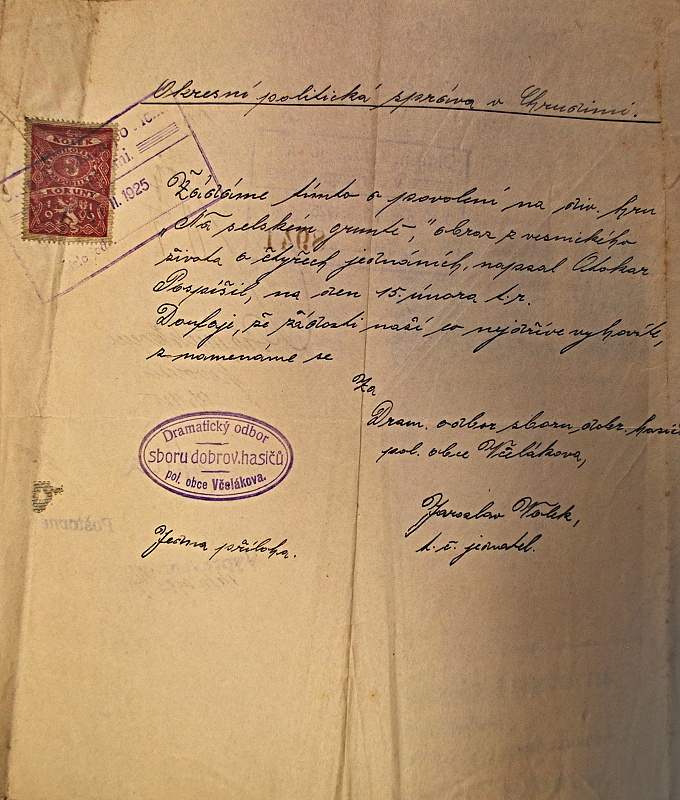 Okresní politická správa v Chrudimi.
KOLEK
3
KORUNY
1919
II. 1925
Žádáme tímto o povolení na div. hru
„Na selském gruntě," obraz z vesnického
života o čtyřech jednáních, napsal Otokar
Pospíšil, na den 15. února t.r.
Doufaje, že žádosti naší co nejdříve vyhovíte,
znamenáme se
Za
Dram. odbor sboru dobr. hasičů
pol. obce Včelákova,
Dramatický odbor
sboru dobrov. hasičů
pol. obce Včelákova.
Jaroslav Volek,
t. č. jednatel.
Jedna příloha.